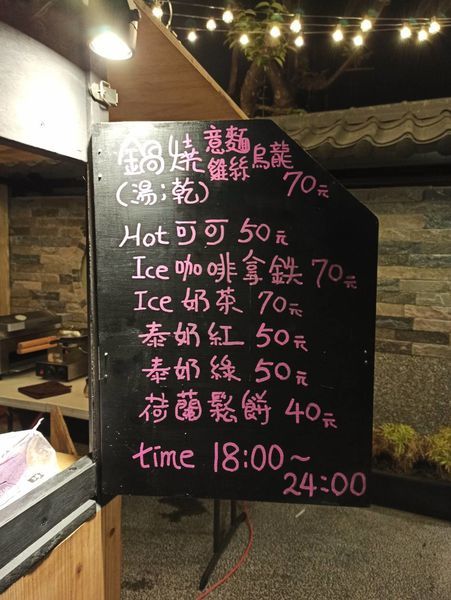 鍋燒 意麵 雞絲 烏龍
(湯;乾) 70元
Hot 可可 50元
Ice 咖啡拿鉄 70元
Ice 奶茶 70元
泰奶紅 50元
泰奶綠 50元
荷蘭鬆餅 40元
time 18:00~
24:00